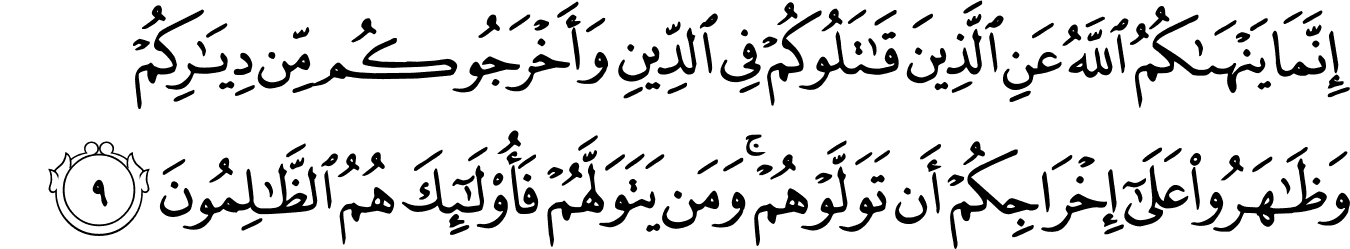 إِنَّمَا يَنْهَىٰكُمُ ٱللَّهُ عَنِ ٱلَّذِينَ قَٰتَلُوكُمْ فِى ٱلدِّينِ وَأَخْرَجُوكُم مِّن دِيَٰرِكُمْ
وَظَٰهَرُوا۟ عَلَىٰٓ إِخْرَاجِكُمْ أَن تَوَلَّوْهُمْ ۚ وَمَن يَتَوَلَّهُمْ فَأُو۟لَٰٓئِكَ هُمُ ٱلظَّٰلِمُونَ ٩